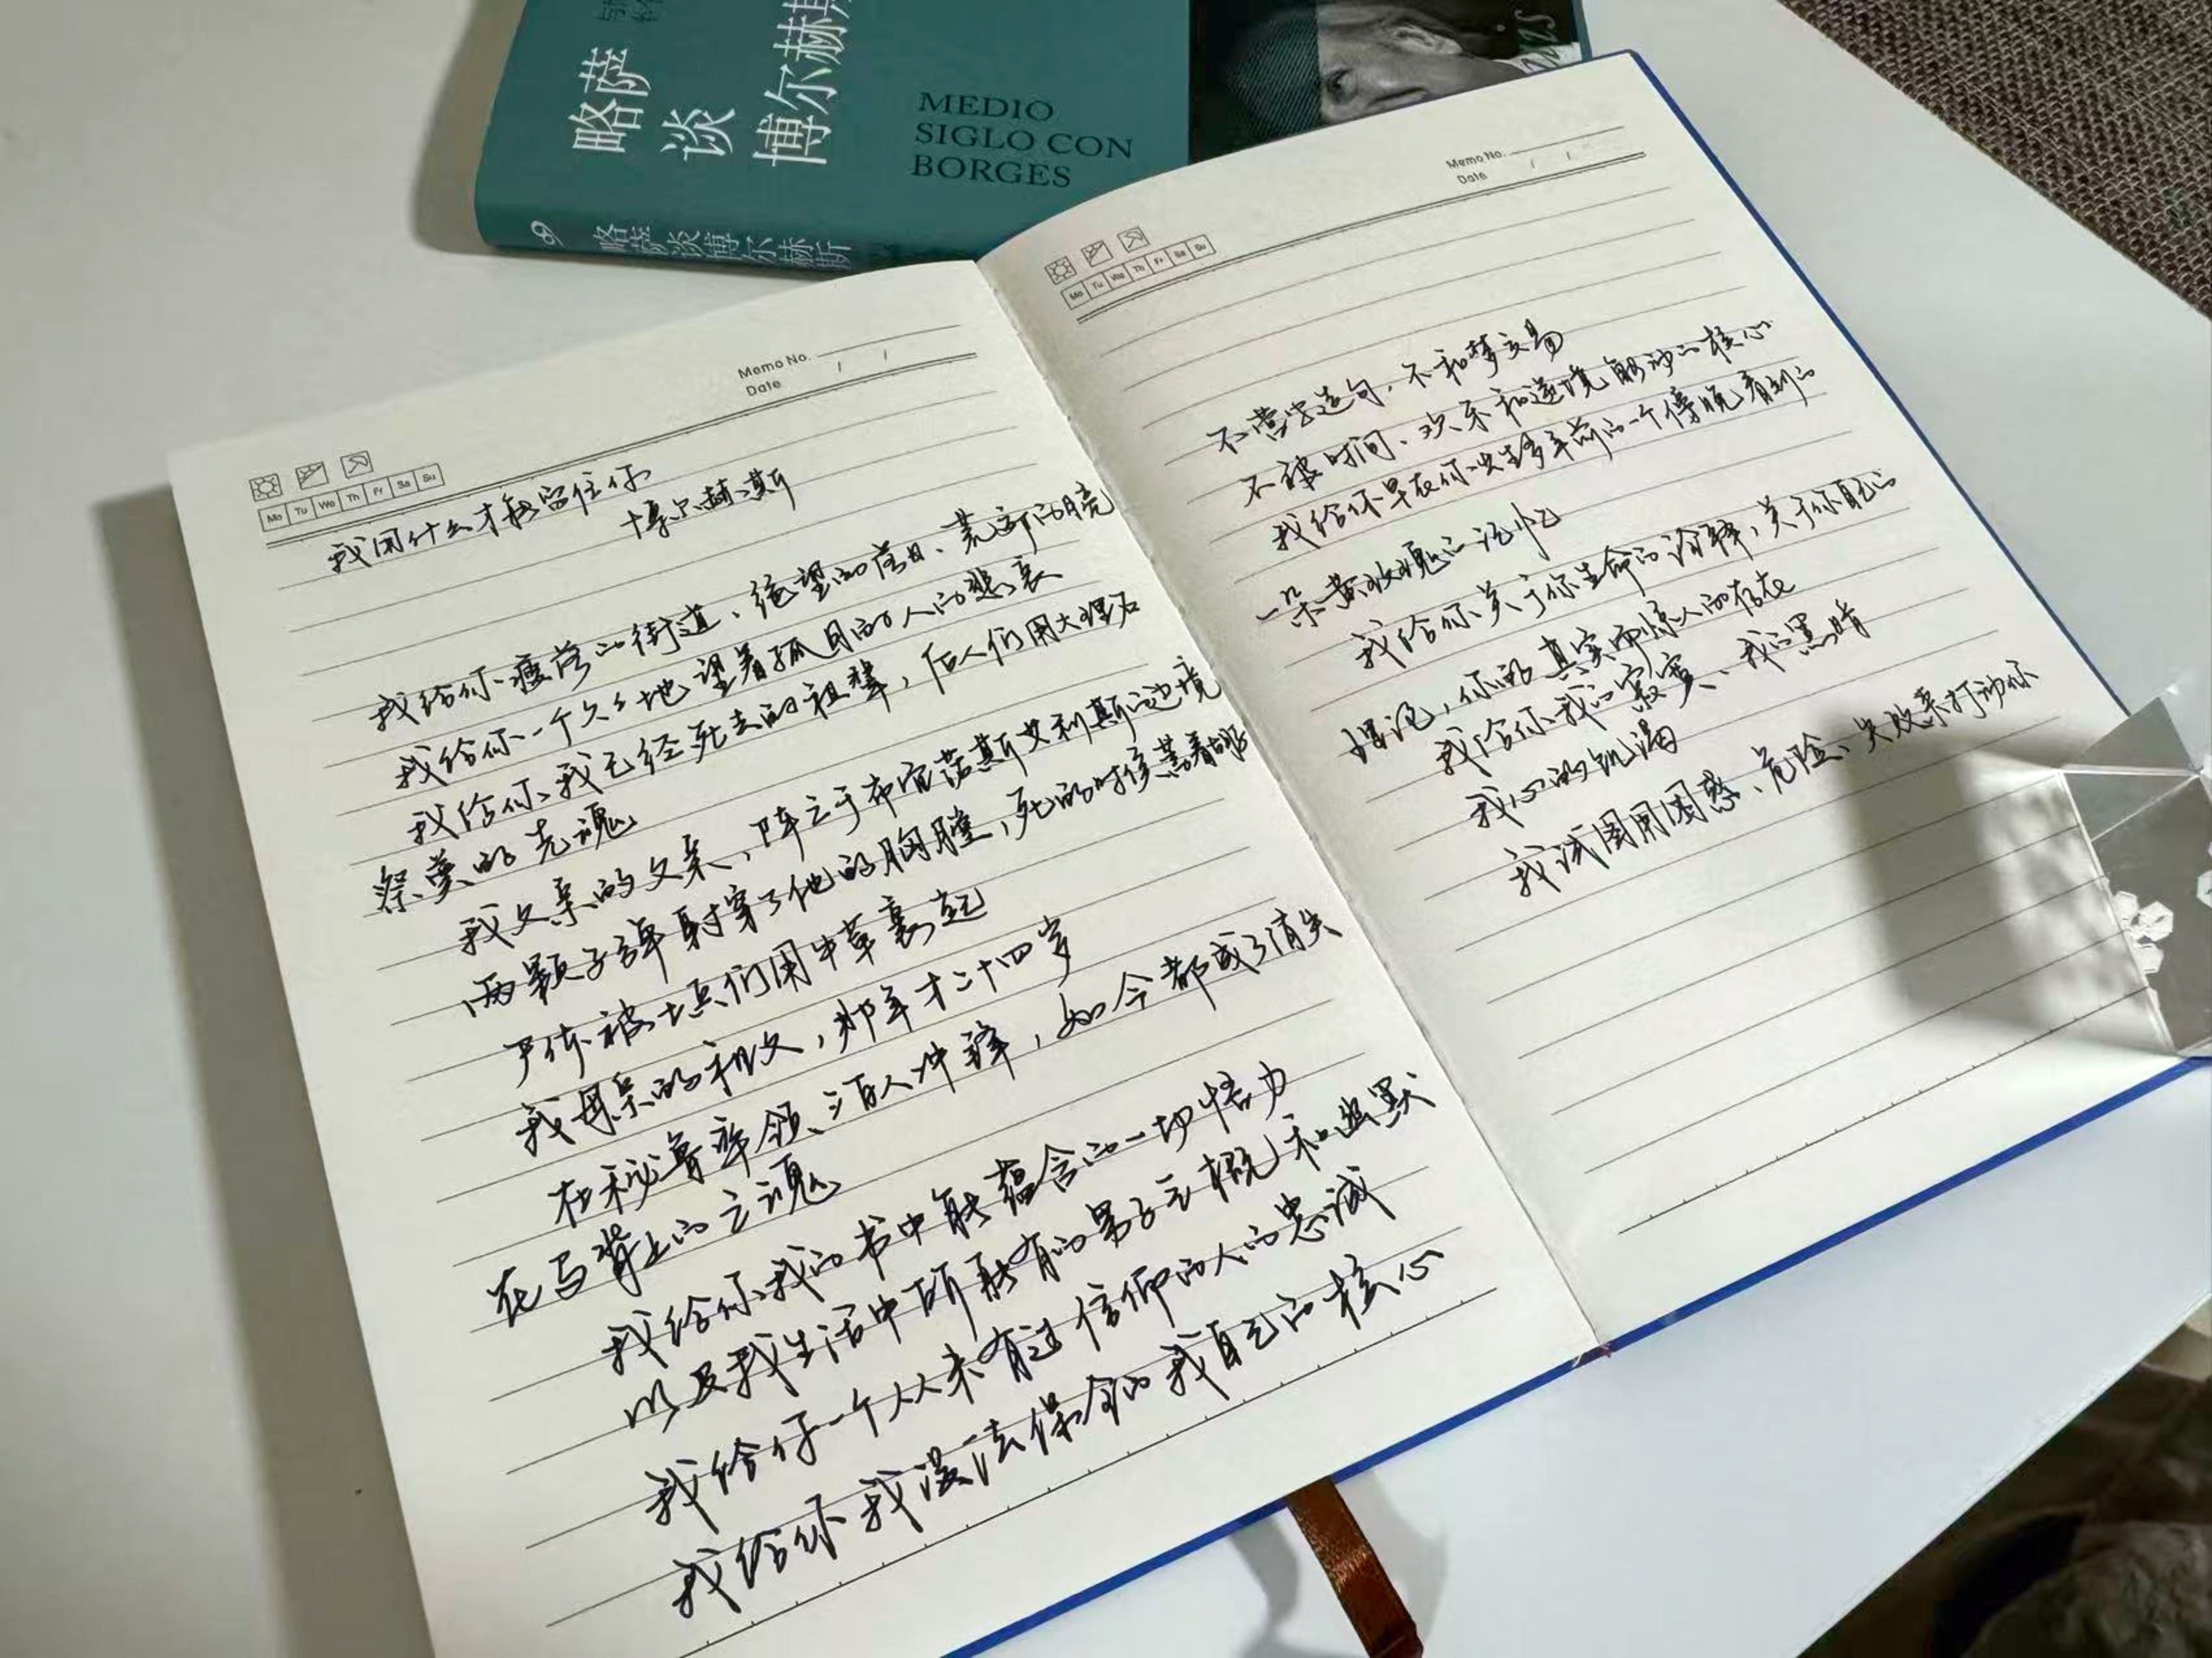 与
略萨
谈
博尔赫斯
MEDIO
SIGLO CON
BORGES
略萨谈博尔赫斯
Memo No.
Date / /
Mo Tu We Th Fr Sa Su
我用什么才能留住你
博尔赫斯
我给你瘦落的街道、绝望的落日、荒郊的月亮
我给你一个久久地望着孤月的人的悲哀
我给你我已经死去的祖辈,后人们用大理石
祭奠的先魂
我父亲的父亲,阵亡于布宜诺斯艾利斯的边境
两颗子弹射穿了他的胸膛,死的时候蓄着胡子
尸体被士兵们用牛革裹起
我母亲的祖父,那年才二十四岁
在秘鲁率领三百人冲锋,如今都成了消失
在马背上的亡魂
我给你我的书中所能蕴含的一切悟力
以及我生活中所能有的男子气概和幽默
我给你一个从未有过信仰的人的忠诚
我给你我设法保全的我自己的核心
Memo No.
Date / /
Mo Tu We Th Fr Sa Su
不营字造句,不和梦交易
不被时间、欢乐和逆境触动的核心
我给你早在你出生多年前的一个傍晚看到的
一朵黄玫瑰的记忆
我给你关于你生命的诠释,关于你自己的
理论,你的真实而惊人的存在
我给你我的寂寞、我的黑暗
我心的饥渴
我试图用困惑、危险、失败来打动你